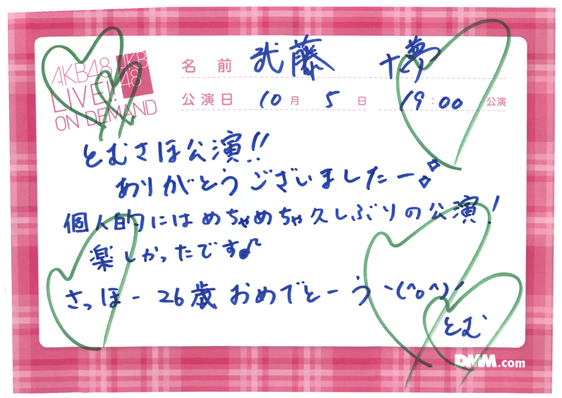 AKB48
LIVE!!
ON DEMAND
AKB
48
名前 武藤 十夢
公演日 10月 5日 19:00 公演
とむさほ公演!!
ありがとうございましたー
個人的にはめちゃめちゃ久しぶりの公演!
楽しかったです♪
さっほー 26歳 おめでとーう ヽ(^o^)ノ
とむ
DMM.com